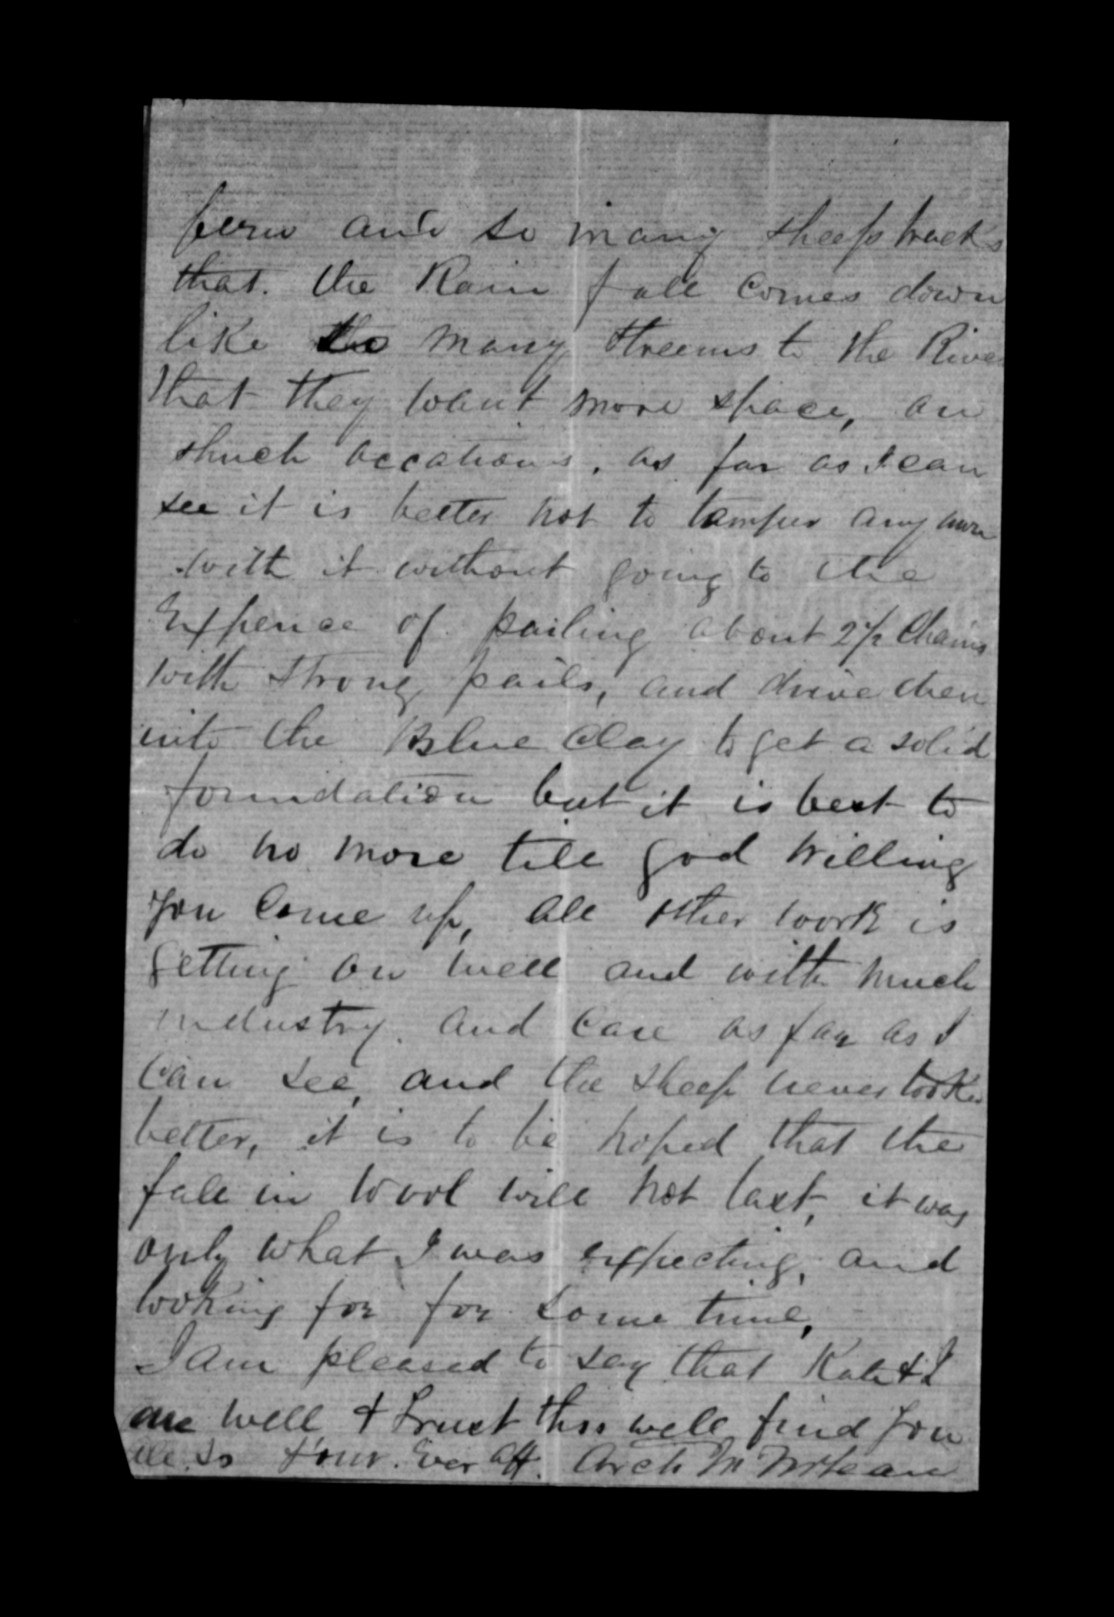 fern and so many sheep tracks
that. the Rain fall comes down
like so many streems to the River
that they want more space, on
shuch occations, as far as I can
see it is better not to tamper any more
with it without going to the
Expence of pailing about 2½ Chains
with strong pails, and drive them
into the Blue Clay to get a solid
foundation but it is best to
do no more till god willing
you Come up, all other work is
getting on well and with much
industry. and Care as far as I
Can see, and the sheep never looked
better, it is to be hoped that the
fall in wool will not last, it was
only what I was expecting, and
looking for for some time,
I am pleased to say that Kate & I
are well & trust this well find you
all so Your. Ever Aff. Arch